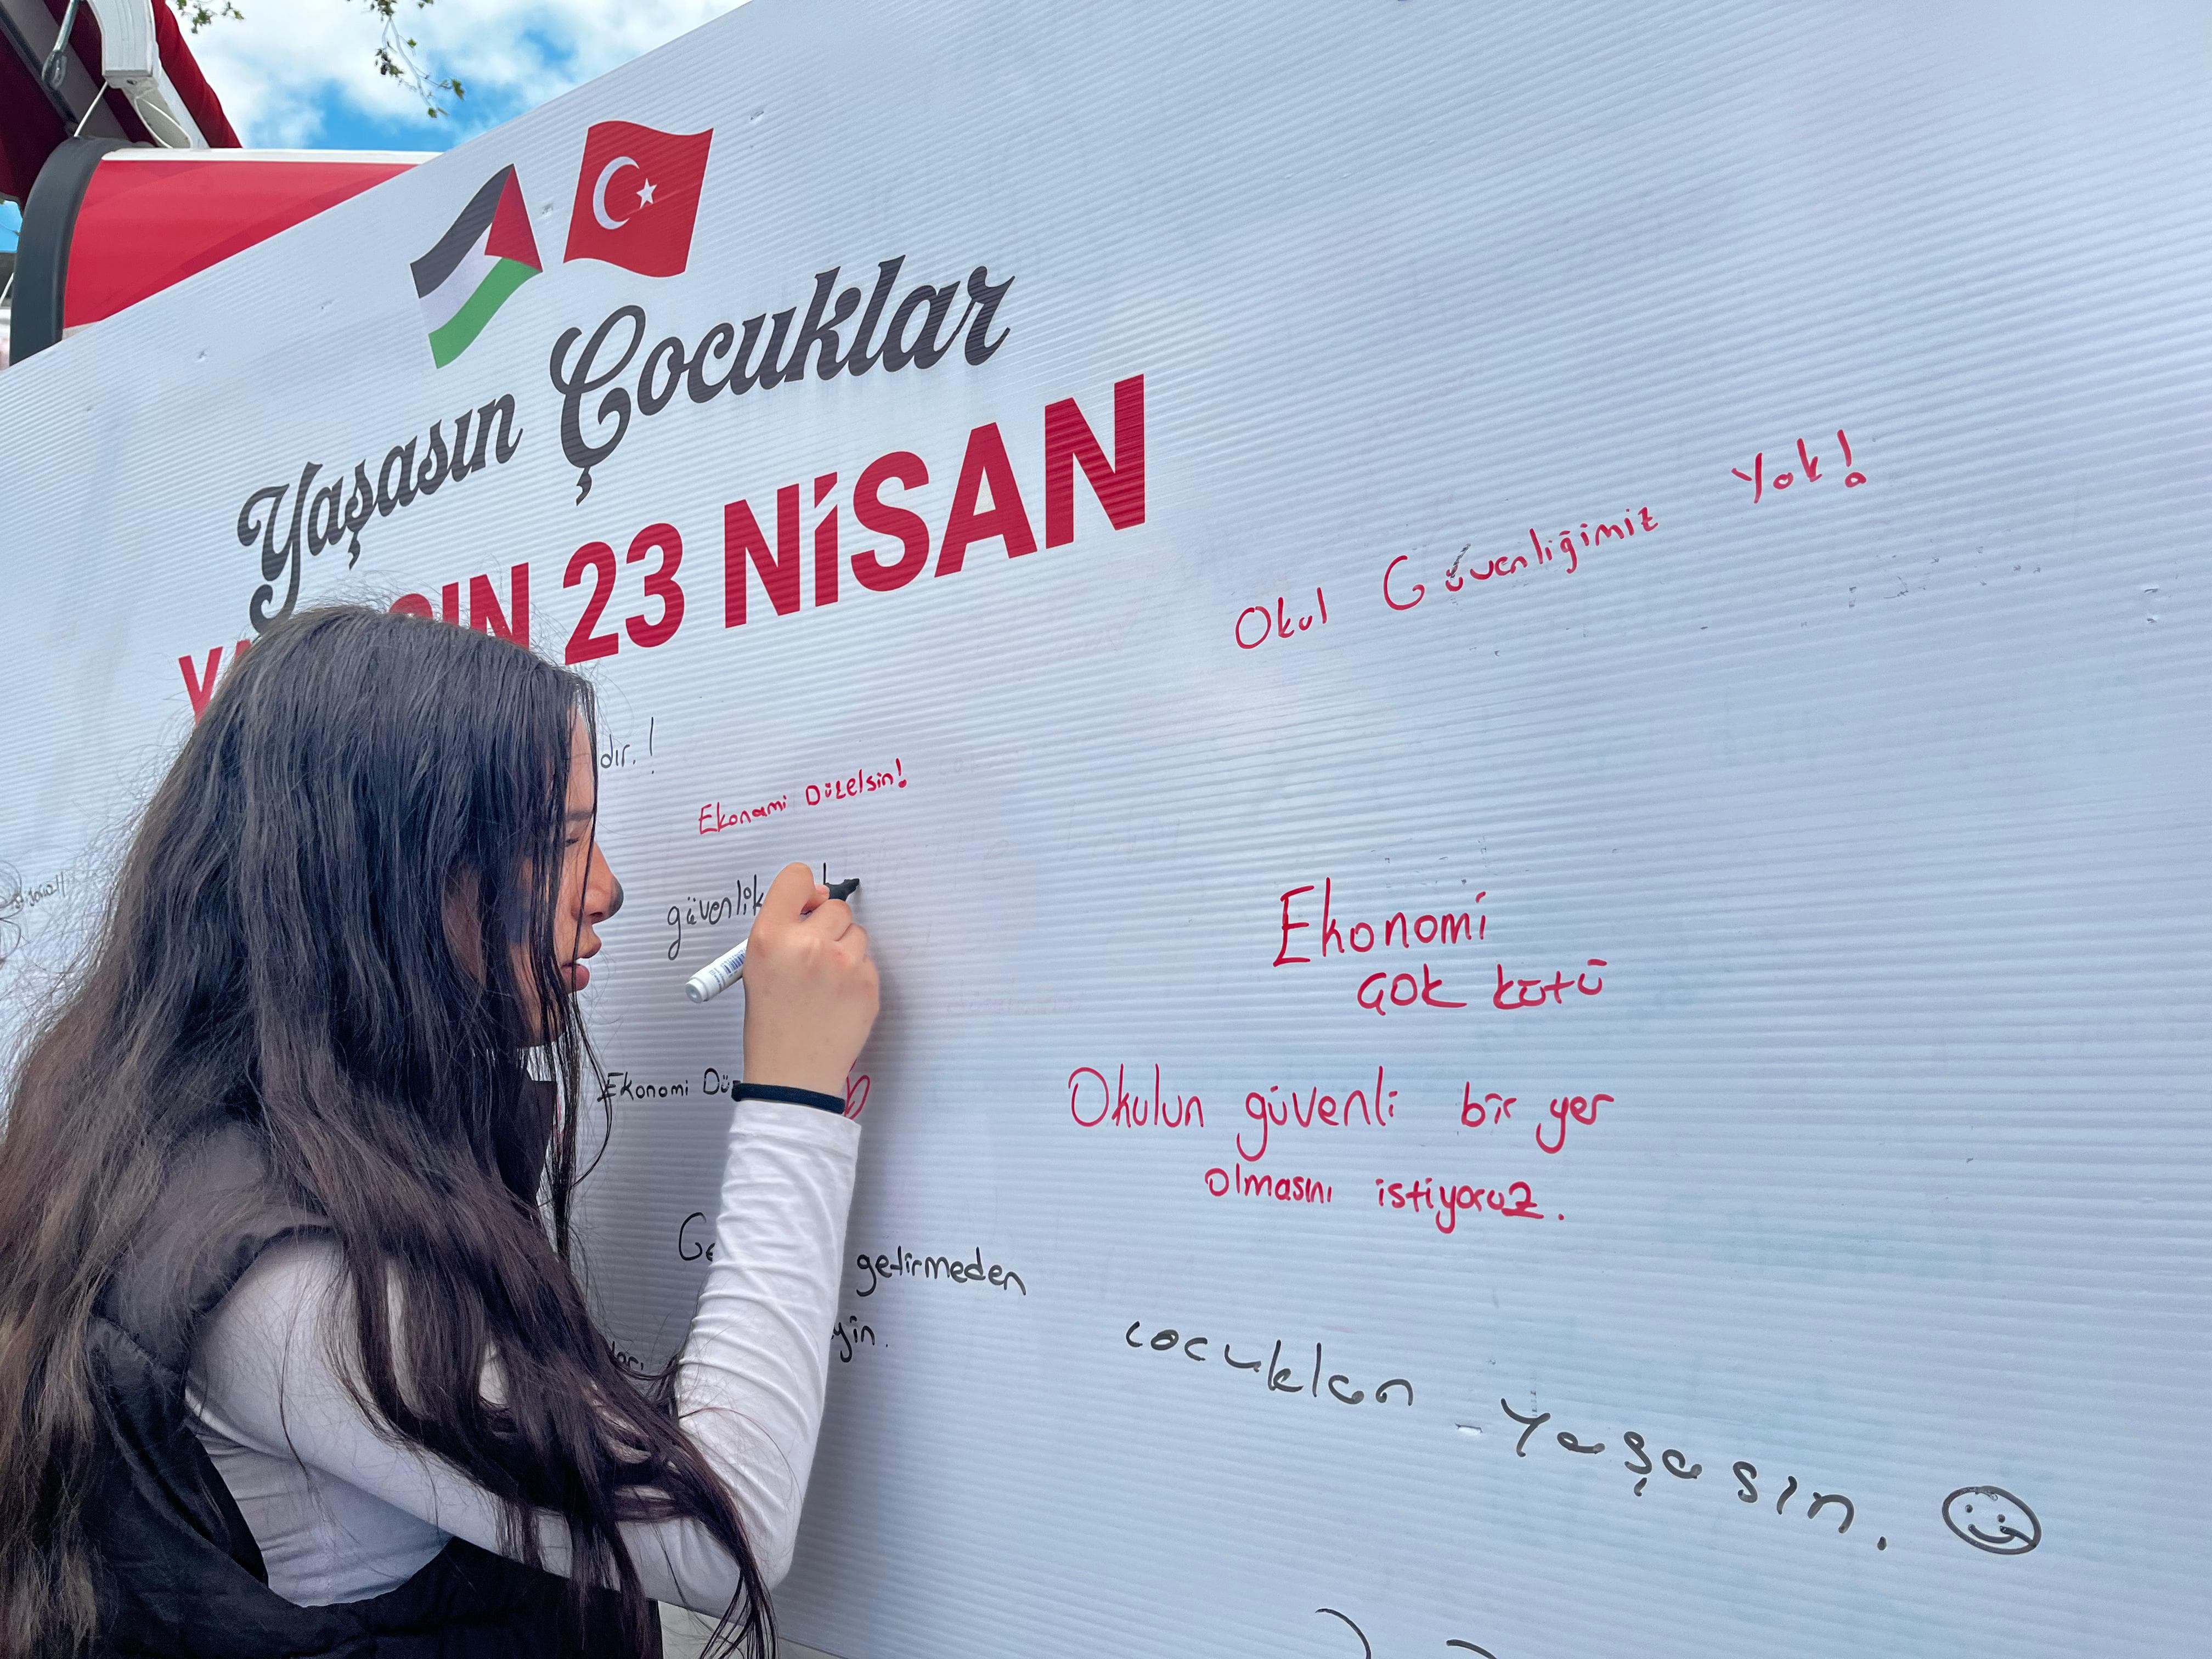 Yaşasın Çocuklar
23 NİSAN
Okul Güvenliğimiz Yok!
dır.!
Ekonomi Düzelsin!
güvenlik
Ekonomi
çok kötü
Ekonomi
Okulun güvenli bir yer
olmasını istiyoruz.
getirmeden
yin.
cocuklar yaşasın.